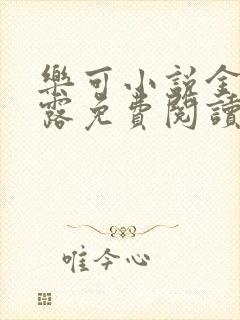 樂可小說全
露免費閱讀
唯今心